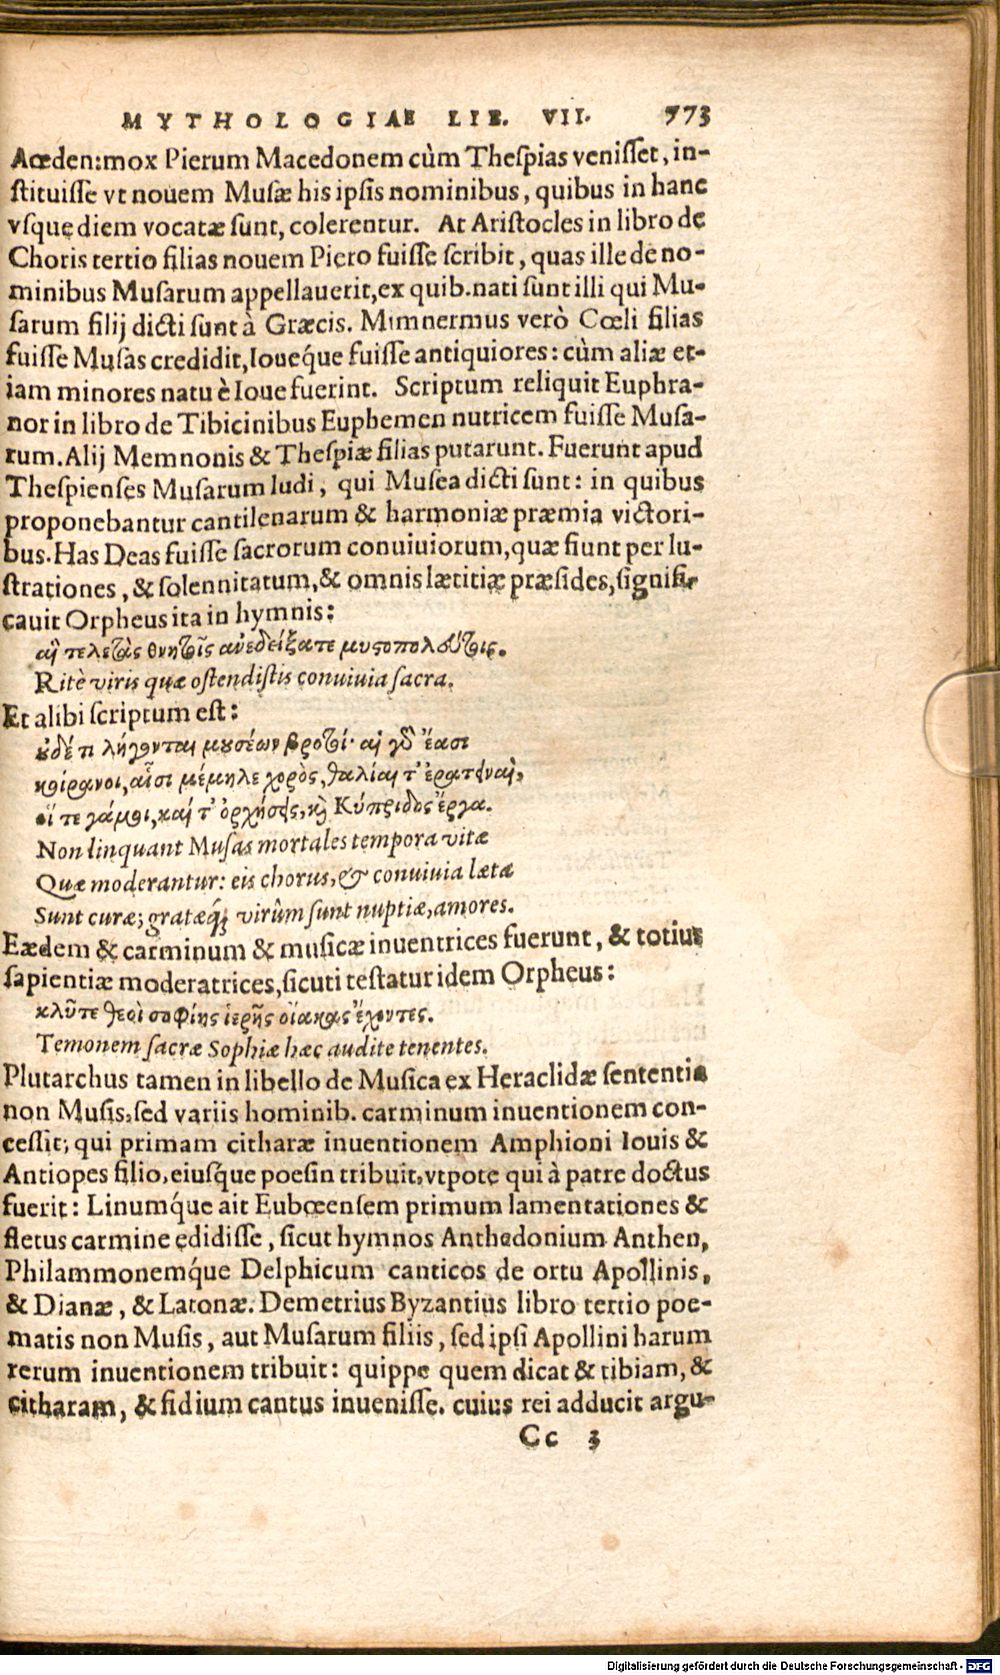 MYTHOLOGIAE LIB. VII. 773
Aœden: mox Pierum Macedonem cùm Theſpias veniſſet, in-
ſtituiſſe vt nouem Muſæ his ipſis nominibus, quibus in hanc
vſque diem vocatæ ſunt, colerentur. At Ariſtocles in libro de
Choris tertio filias nouem Piero fuiſſe ſcribit, quas ille de no-
minibus Muſarum appellauerit, ex quib. nati ſunt illi qui Mu-
ſarum filij dicti ſunt à Græcis. Mimnermus verò Cœli filias
fuiſſe Muſas credidit, Ioueq́ue fuiſſe antiquiores: cùm aliæ et-
iam minores natu è Ioue fuerint. Scriptum reliquit Euphra-
nor in libro de Tibicinibus Euphemen nutricem fuiſſe Muſa-
rum. Alij Memnonis & Theſpiæ filias putarunt. Fuerunt apud
Theſpienſes Muſarum ludi, qui Muſea dicti ſunt: in quibus
proponebantur cantilenarum & harmoniæ præmia victori-
bus. Has Deas fuiſſe ſacrorum conuiuiorum, quæ fiunt per lu-
ſtrationes, & ſolennitatum, & omnis lætitiæ præſides, ſignifi-
cauit Orpheus ita in hymnis:
αἳ τελετὰς θνητοῖς ἀνεδείξατε μυστοπολεύτοις.
Ritè viris quæ oſtendiſtis conuiuia ſacra.
Et alibi ſcriptum eſt:
οὐδέ τι λήγονται μουσέων βροτοί· αἳ γὰρ ἔασι
κοίρανοι, αἷσι μέμηλε χορὸς, θαλίαι τ' ἐρατειναὶ,
οἵ τε γάμοι, καί τ' ὀρχήσεις, καὶ Κύπριδος ἔργα.
Non linquant Muſas mortales tempora vitæ
Quæ moderantur: eis chorus, & conuiuia læta
Sunt curæ; gratæq́; virûm ſunt nuptiæ, amores.
Eædem & carminum & muſicæ inuentrices fuerunt, & totius
ſapientiæ moderatrices, ſicuti teſtatur idem Orpheus:
κλῦτε θεοὶ σοφίης ἱερῆς οἴακας ἔχοντες.
Temonem ſacræ Sophiæ hæc audite tenentes.
Plutarchus tamen in libello de Muſica ex Heraclidæ ſententia
non Muſis, ſed variis hominib. carminum inuentionem con-
ceſſit; qui primam citharæ inuentionem Amphioni Iouis &
Antiopes filio, eiuſque poeſin tribuit, vtpote qui à patre doctus
fuerit: Linumq́ue ait Eubœenſem primum lamentationes &
fletus carmine edidiſſe, ſicut hymnos Anthedonium Anthen,
Philammonemq́ue Delphicum canticos de ortu Apollinis,
& Dianæ, & Latonæ. Demetrius Byzantius libro tertio poe-
matis non Muſis, aut Muſarum filiis, ſed ipſi Apollini harum
rerum inuentionem tribuit: quippe quem dicat & tibiam, &
citharam, & fidium cantus inueniſſe. cuius rei adducit argu-
Cc 3
Digitalisierung gefördert durch die Deutsche Forschungsgemeinschaft - DFG